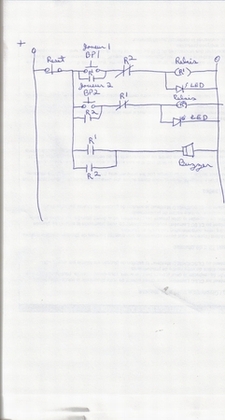 +
0
0
Joueur 1
Reset
BP1
R2
Relais
R1
LED
Joueur 2
BP2
R1
Relais
R2
LED
R1
Buzzer
R2